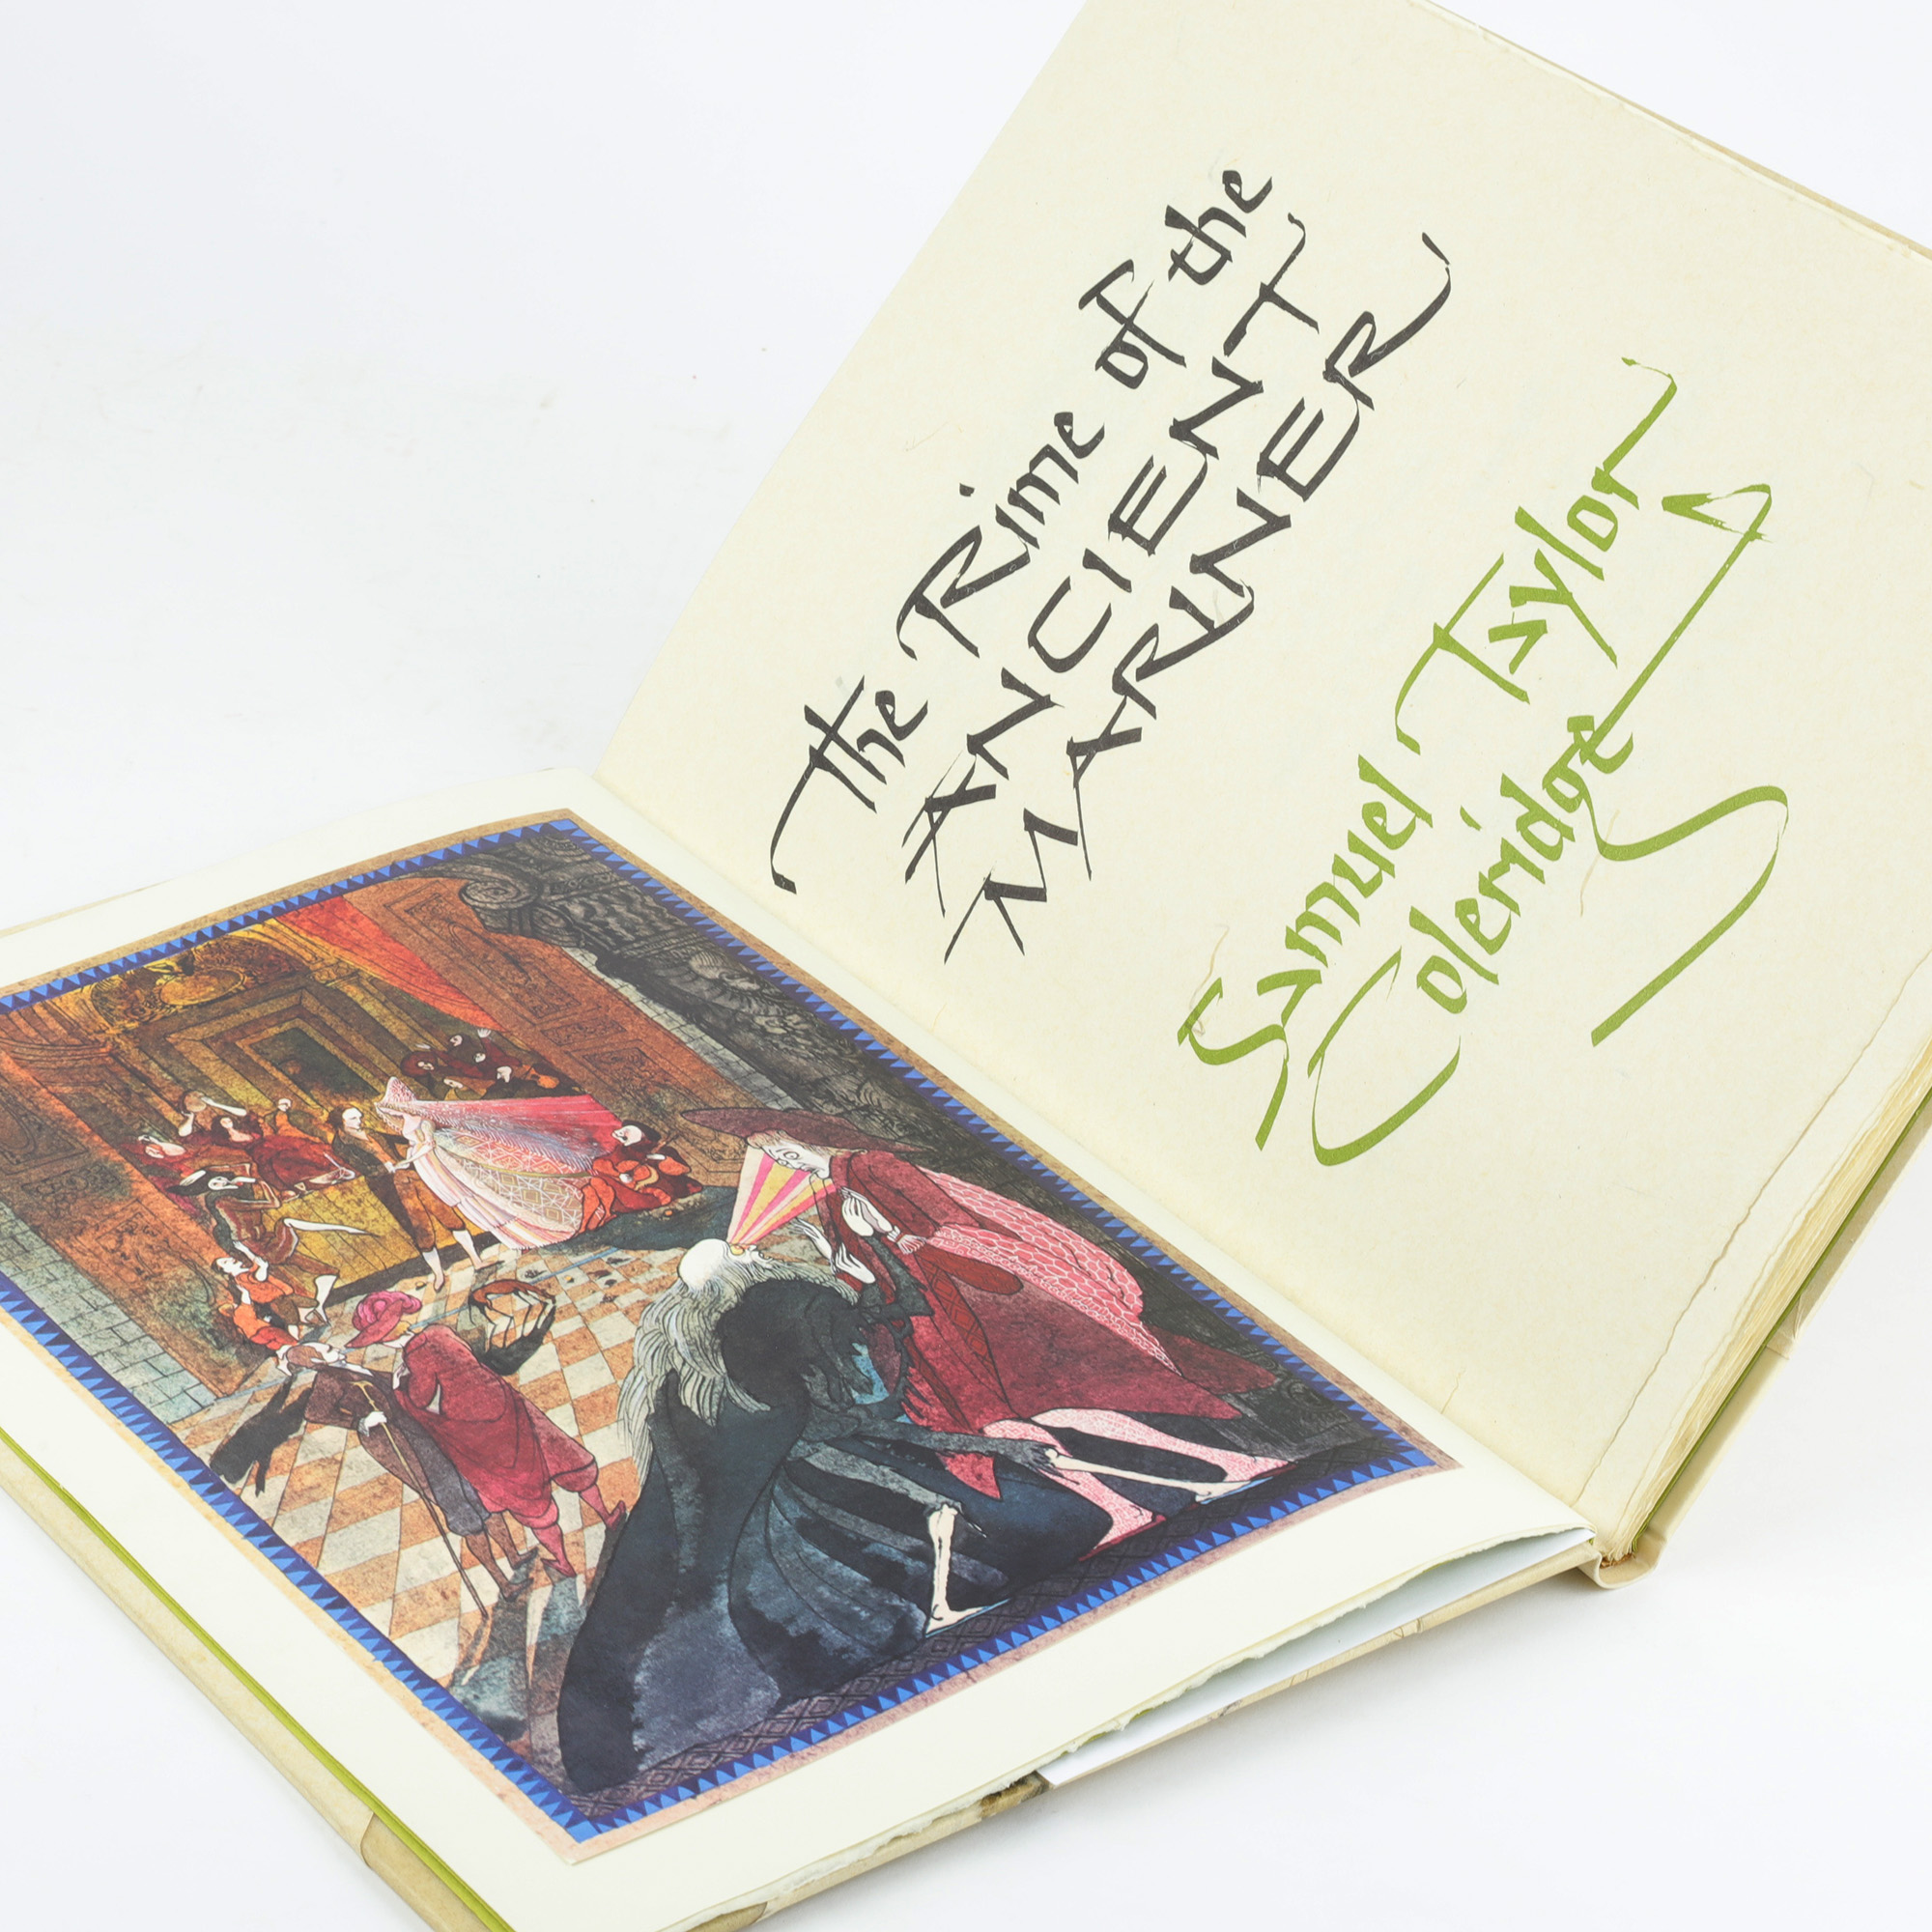 The Rime of the
ANCIENT
MARINER
Samuel Taylor
Coleridge